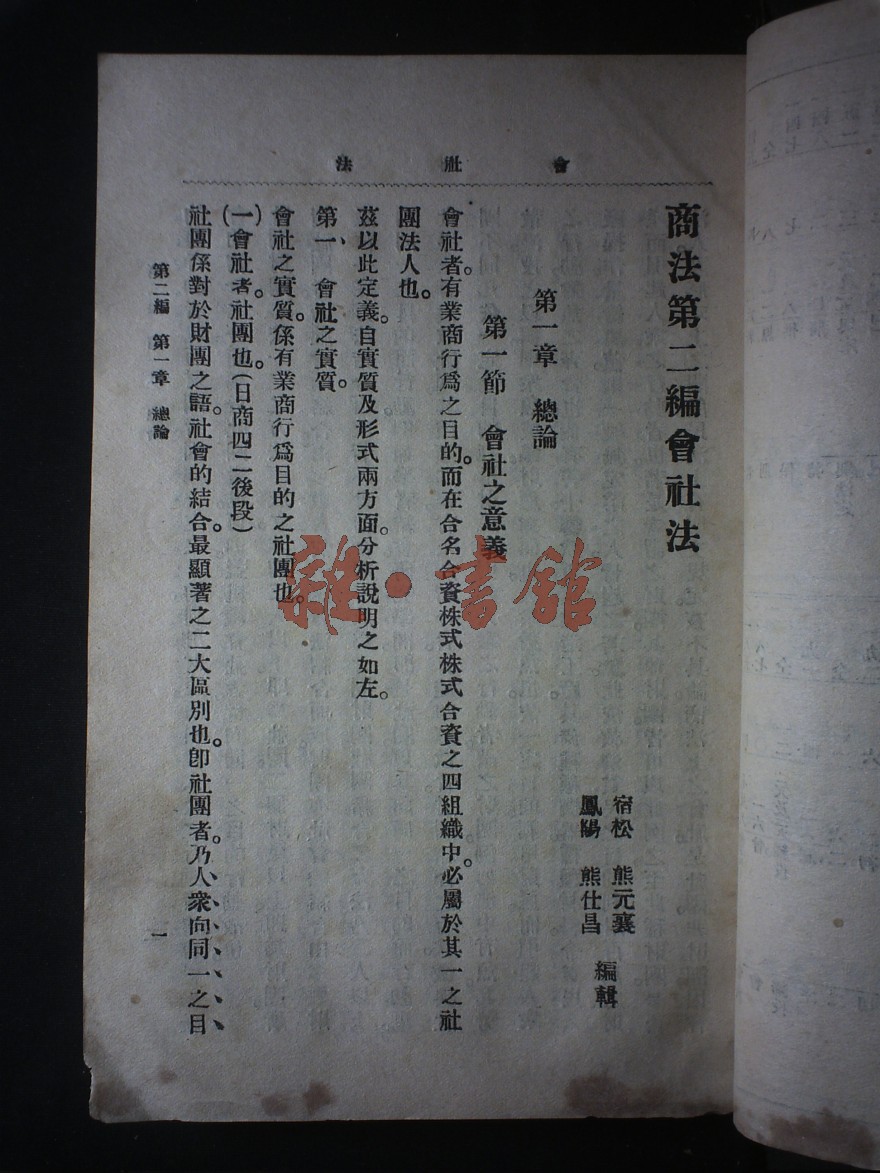 會社法
商法第二編會社法
宿松 熊元襄
鳳陽 熊仕昌
編輯
第一章 總論
第一節 會社之意義
會社者。有業商行爲之目的。而在合名合資株式株式合資之四組織中。必屬於其一之社
團法人也。
茲以此定義。自實質及形式兩方面。分析說明之如左。
第一、會社之實質。
會社之實質。係有業商行爲目的之社團也。
(一)會社者。社團也。(日商四二後段)
社團係對於財團之語。社會的結合。最顯著之二大區別也。卽社團者。乃人衆向同一之目
第二編 第一章 總論
一
雜·書館